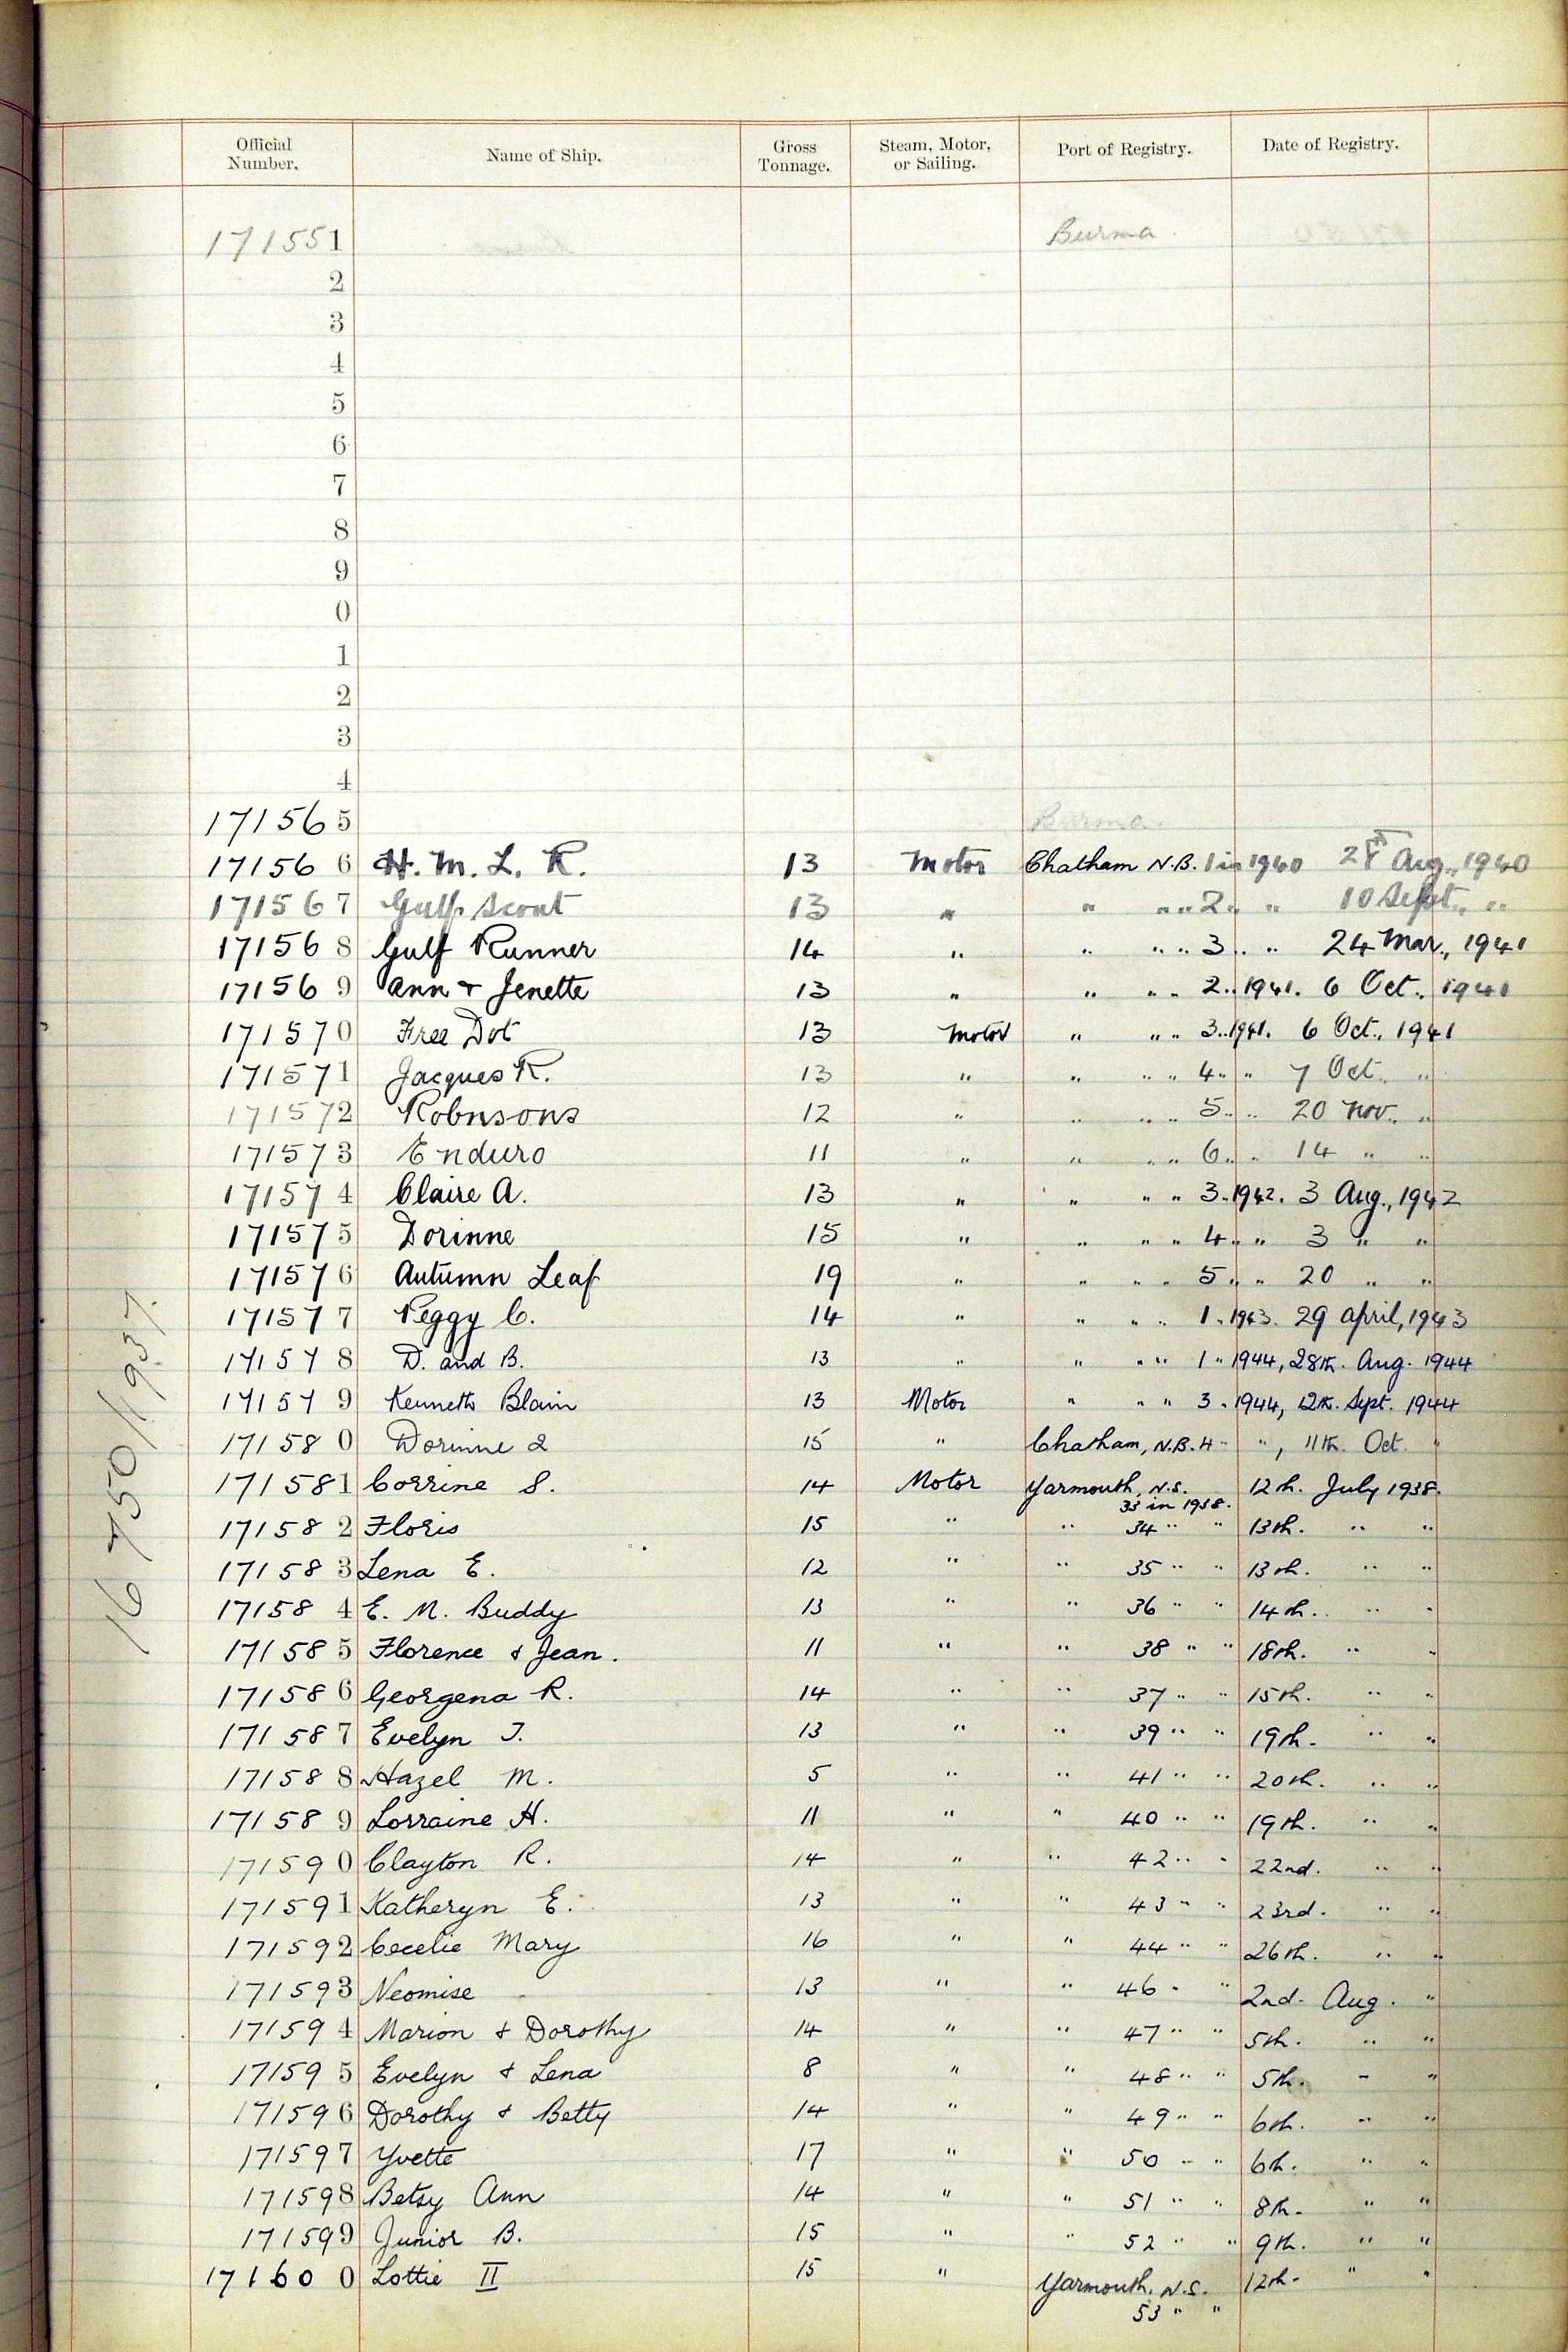 Official Number. Name of Ship. Gross Tonnage. Steam, Motor, or Sailing. Port of Registry. Date of Registry.
171551 Burma.
2
3
4
5
6
7
8
9
0
1
2
3
4
171565 Burma.
171566 H. M. L. R. 13 Motor Chatham N.B. 1 in 1940 28th Aug., 1940
171567 Gulf Scout 13 " " " " 2 " " 10 Sept., "
171568 Gulf Runner 14 " " " " 3 " " 24 Mar., 1941
171569 Ann & Jenette 13 " " " " 2 " 1941. 6 Oct., 1941
171570 Free Dot 13 Motor " " " 3 " 1941. 6 Oct., 1941
171571 Jacques R. 13 " " " " 4 " " 7 Oct., "
171572 Robnsons 12 " " " " 5 " " 20 Nov., "
171573 Enduro 11 " " " " 6 " " 14 " "
171574 Claire A. 13 " " " " 3 " 1942. 3 Aug., 1942
171575 Dorinne 15 " " " " 4 " " 3 " "
171576 Autumn Leaf 19 " " " " 5 " " 20 " "
171577 Peggy C. 14 " " " " 1 " 1943. 29 April, 1943
171578 D. and B. 13 " " " " 1 " 1944, 28th. Aug. 1944
171579 Kenneth Blain 13 Motor " " " 3 " 1944, 12th. Sept. 1944
171580 Dorinne 2 15 " Chatham, N.B. 4 " ", 11th. Oct. "
171581 Corrine S. 14 Motor Yarmouth, N.S. 12th. July 1938.
33 in 1938.
171582 Floris 15 " " 34 " " 13th. " "
171583 Lena E. 12 " " 35 " " 13th. " "
171584 E. M. Buddy 13 " " 36 " " 14th. " "
171585 Florence & Jean. 11 " " 38 " " 18th. " "
171586 Georgena R. 14 " " 37 " " 15th. " "
171587 Evelyn J. 13 " " 39 " " 19th. " "
171588 Hazel M. 5 " " 41 " " 20th. " "
171589 Lorraine H. 11 " " 40 " " 19th. " "
171590 Clayton R. 14 " " 42 " " 22nd. " "
171591 Katheryn E. 13 " " 43 " " 23rd. " "
171592 Cecelie Mary 16 " " 44 " " 26th. " "
171593 Neomise 13 " " 46 " " 2nd. Aug. "
171594 Marion & Dorothy 14 " " 47 " " 5th. " "
171595 Evelyn & Lena 8 " " 48 " " 5th. " "
171596 Dorothy & Betty 14 " " 49 " " 6th. " "
171597 Yvette 17 " " 50 " " 6th. " "
171598 Betsy Ann 14 " " 51 " " 8th. " "
171599 Junior B. 15 " " 52 " " 9th. " "
171600 Lottie II 15 " Yarmouth, N.S. 12th. " "
53 " "
16750/1937.